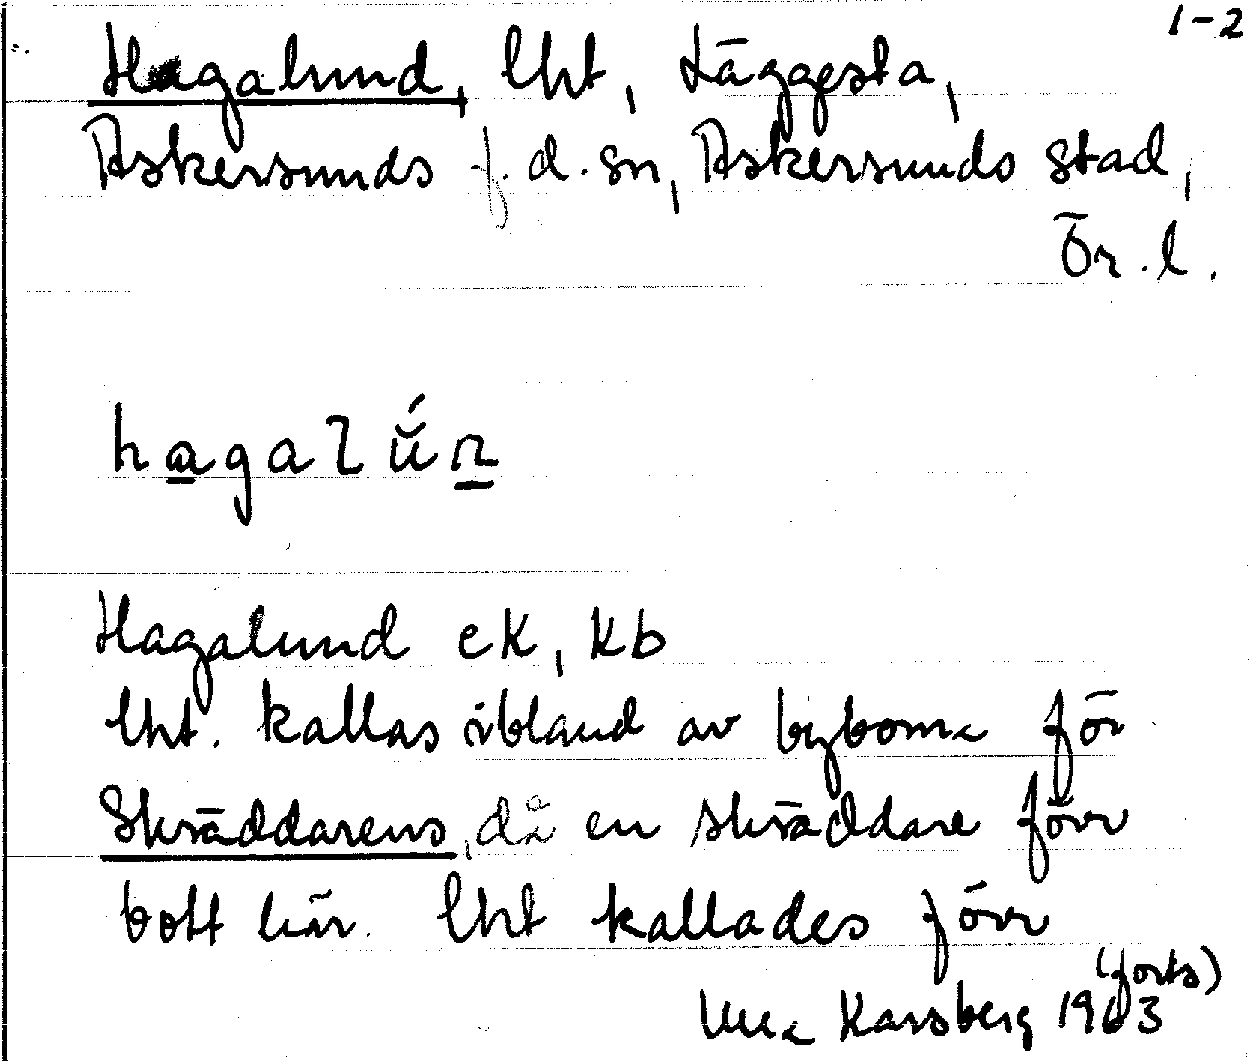 1-2
Hagalund, lht, Läggesta,
Askersunds f.d. sn, Askersunds stad,
Ör. l.
hagalún
Hagalund ek, kb
lht. kallas ibland av byborna för
Skräddarens, då en skräddare förr
bott här. Lht kallades förr
(forts)
Karsberg 1963